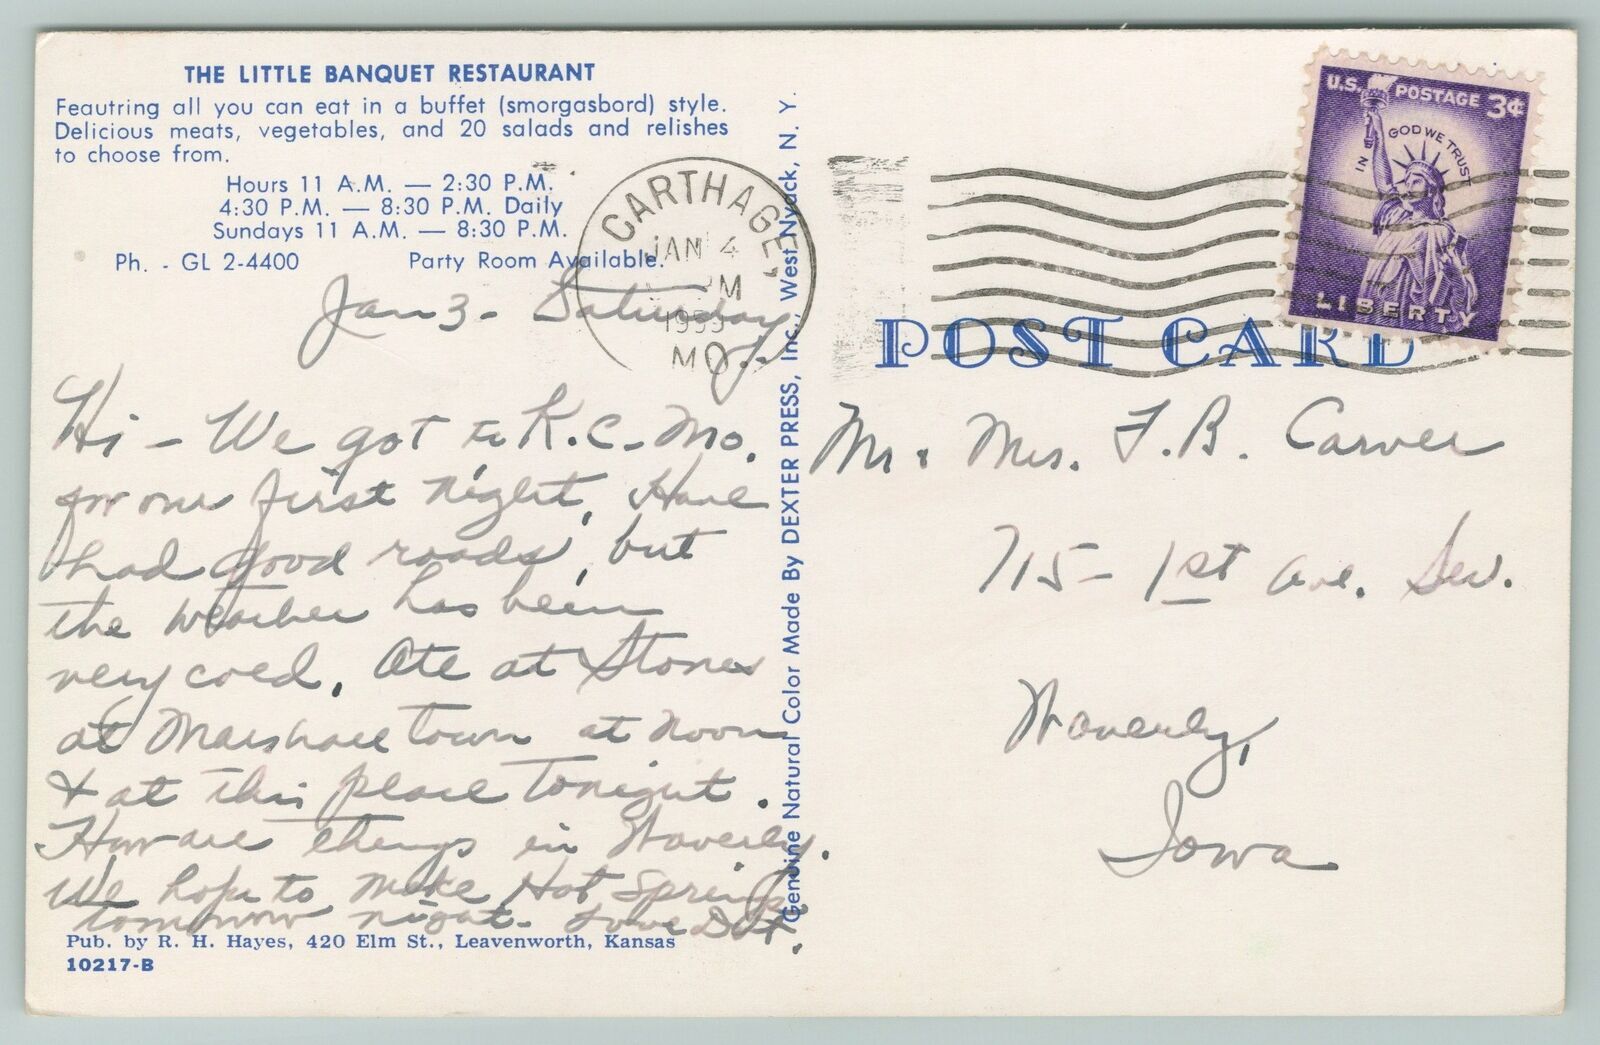 THE LITTLE BANQUET RESTAURANT
Feautring all you can eat in a buffet (smorgasbord) style.
Delicious meats, vegetables, and 20 salads and relishes
to choose from.
Hours 11 A.M. — 2:30 P.M.
4:30 P.M. — 8:30 P.M. Daily
Sundays 11 A.M. — 8:30 P.M.
Ph. - GL 2-4400 Party Room Available.
Jan 3 - Saturday
Hi - We got to K.C. Mo.
for our first night. Have
had good roads, but
the weather has been
very cold. Ate at Stones
at Marshalltown at noon
& at this place tonight.
How are things in Waverly.
We hope to make Hot Springs
tomorrow night. Love Dot.
Pub. by R. H. Hayes, 420 Elm St., Leavenworth, Kansas
10217-B
Genuine Natural Color Made By DEXTER PRESS, Inc., West Nyack, N. Y.
CARTHAGE,
JAN 4
PM
1959
MO.
U.S. POSTAGE 3¢
IN GOD WE TRUST
LIBERTY
POST CARD
Mr. & Mrs. F. B. Carver
715 - 1st Ave. S.W.
Waverly,
Iowa